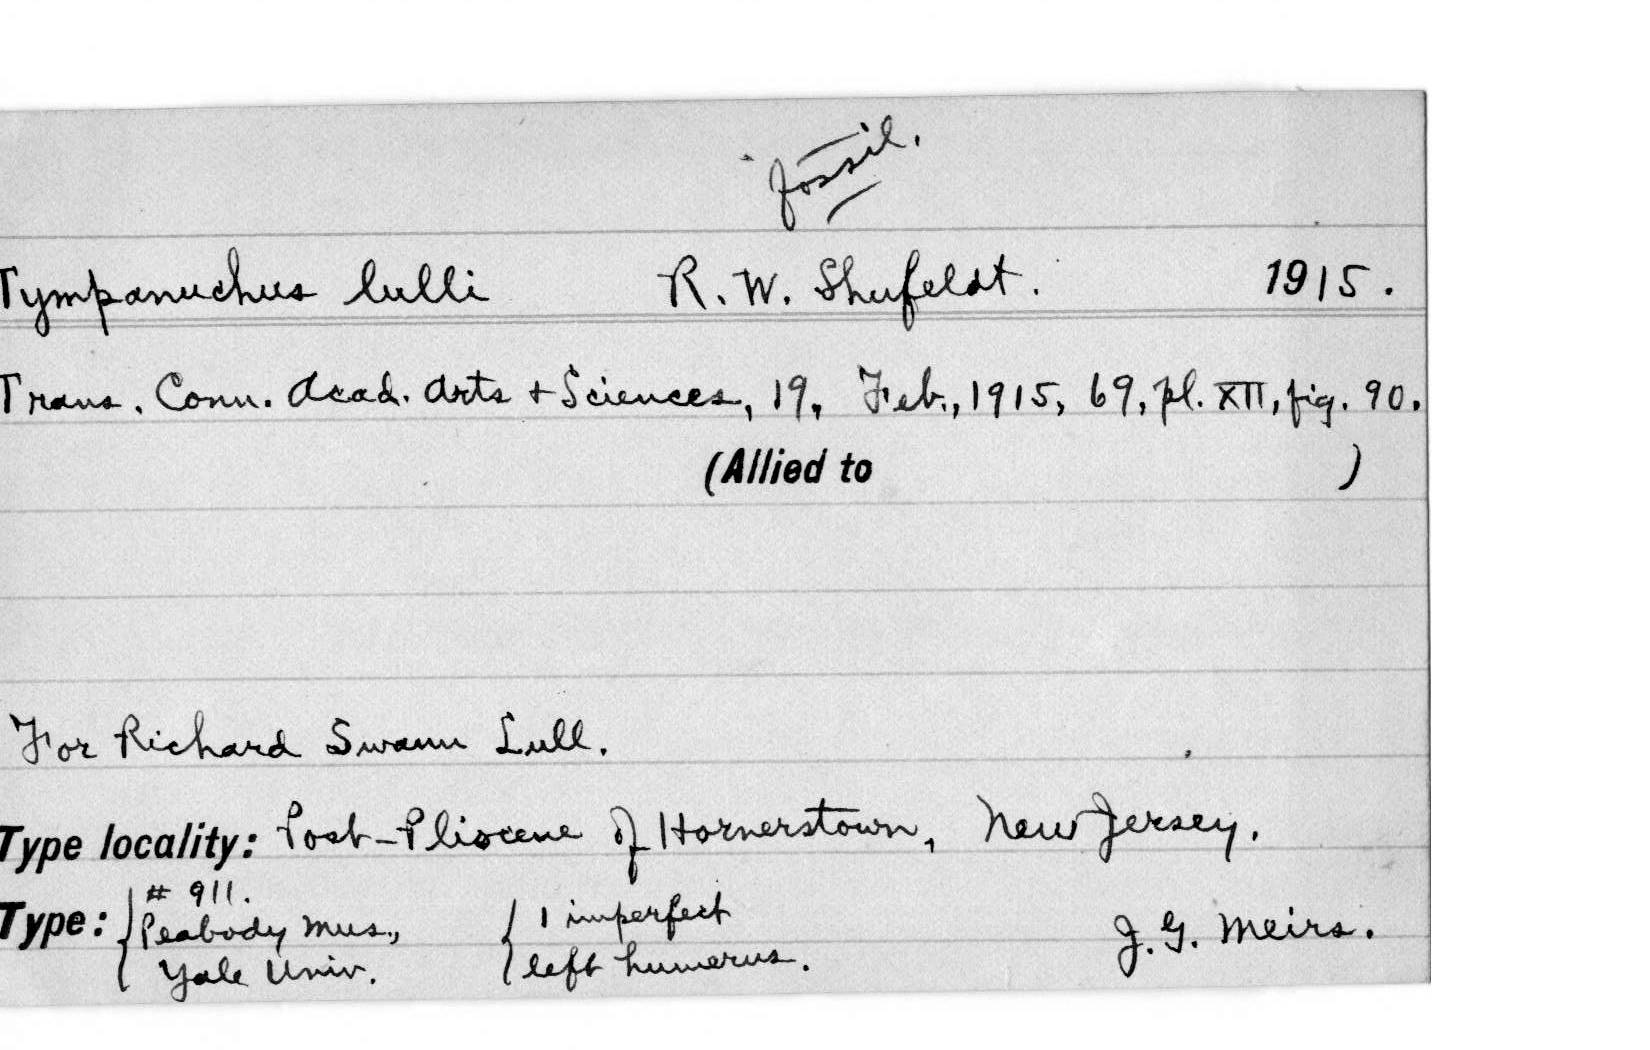 fossil.
Tympanuchus lulli R. W. Shufeldt. 1915.
Trans. Conn. Acad. Arts + Sciences, 19, Feb., 1915, 69, pl. XII, fig. 90.
(Allied to )
For Richard Swann Lull.
Type locality: Post-Pliocene of Hornerstown, New Jersey.
Type: { # 911. Peabody Mus., Yale Univ. { 1 imperfect left humerus. J. G. Meirs.